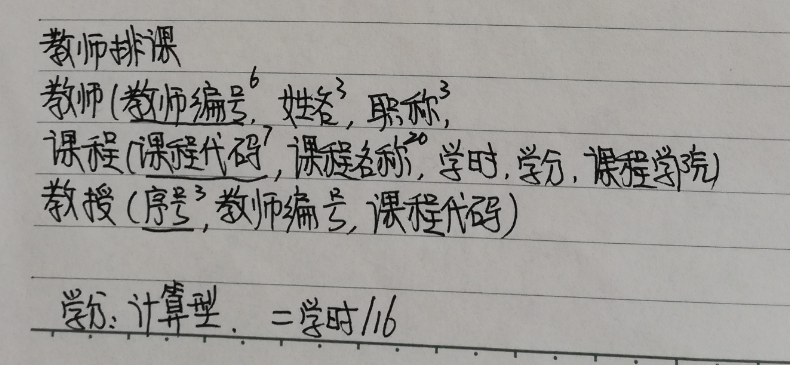 教师排课
教师(教师编号6, 姓名3, 职称3,
课程(课程代码7, 课程名称20, 学时, 学分, 课程学院)
教授(序号3, 教师编号, 课程代码)
学分: 计算型. =学时/16